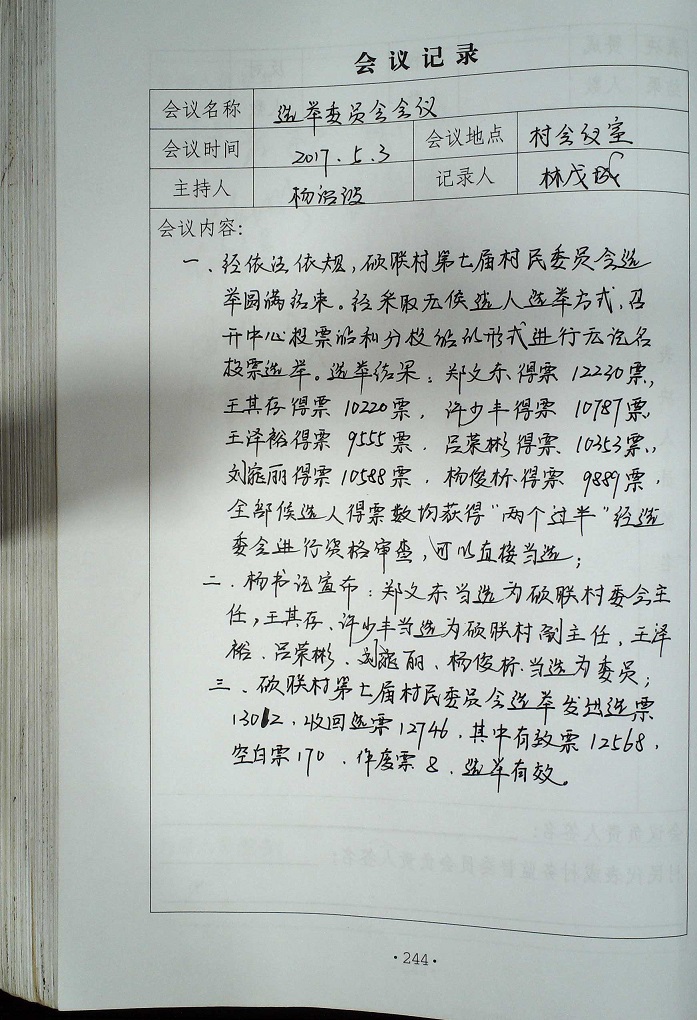 会议记录
会议名称 选举委员会会议
会议时间 2017.5.3 会议地点 村会议室
主持人 杨治波 记录人 林茂城
会议内容:
一、经依法依规,硕联村第七届村民委员会选
举圆满结束。经采取无候选人选举方式,召
开中心投票站和分投站的形式进行无记名
投票选举。选举结果:郑文东得票12230票,
王其存得票10220票,许少丰得票10787票,
王泽裕得票9555票,吕荣彬得票10353票,
刘 丽得票10588票,杨俊标得票9889票,
全部候选人得票数均获得“两个过半”经选
委会进行资格审查,可以直接当选;
二、杨书记宣布:郑文东当选为硕联村委会主
任,王其存、许少丰当选为硕联村副主任,王泽
裕、吕荣彬、刘 丽、杨俊标当选为委员;
三、硕联村第七届村民委员会选举发出选票
13012,收回选票12746,其中有效票12568,
空白票170,作废票8,选举有效。
·244·